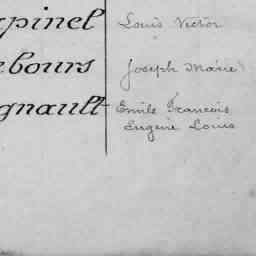 pinel Louis Victor
ebours Joseph Marie
gnault Emile François
Eugène Louis